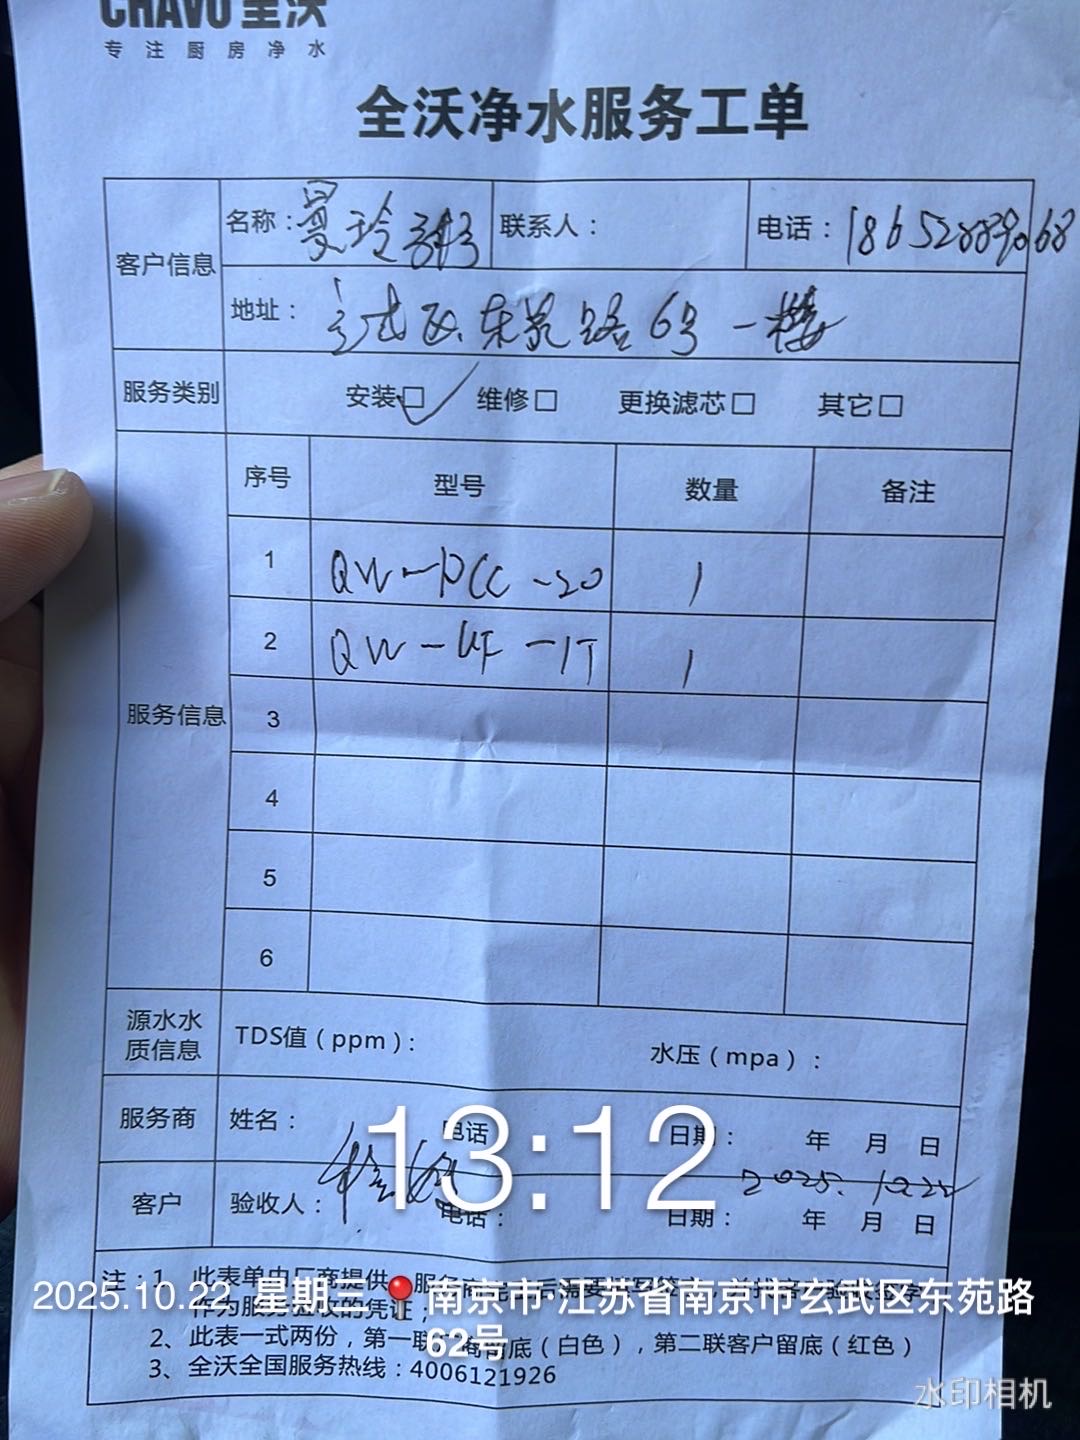 CHAVO 全沃
专注厨房净水
全沃净水服务工单
客户信息
名称：曼玲粥
联系人：
电话：
地址：玄武区东苑路6号一楼
服务类别
安装☑ 维修□ 更换滤芯□ 其它□
服务信息
序号 型号 数量 备注
1 QW-DCC-20 1
2 QW-UF-1T 1
3
4
5
6
源水水质信息
TDS值（ppm）：
水压（mpa）：
服务商
姓名：
电话
日期： 年 月 日
客户
验收人：
电话：
日期： 年 月 日
2025.10.22
13:12
注：1、此表单由厂商提供
作为服务验收的凭证；
2、此表一式两份，第一联厂商留底（白色），第二联客户留底（红色）
3、全沃全国服务热线：4006121926
2025.10.22 星期三 南京市·江苏省南京市玄武区东苑路
62号
水印相机